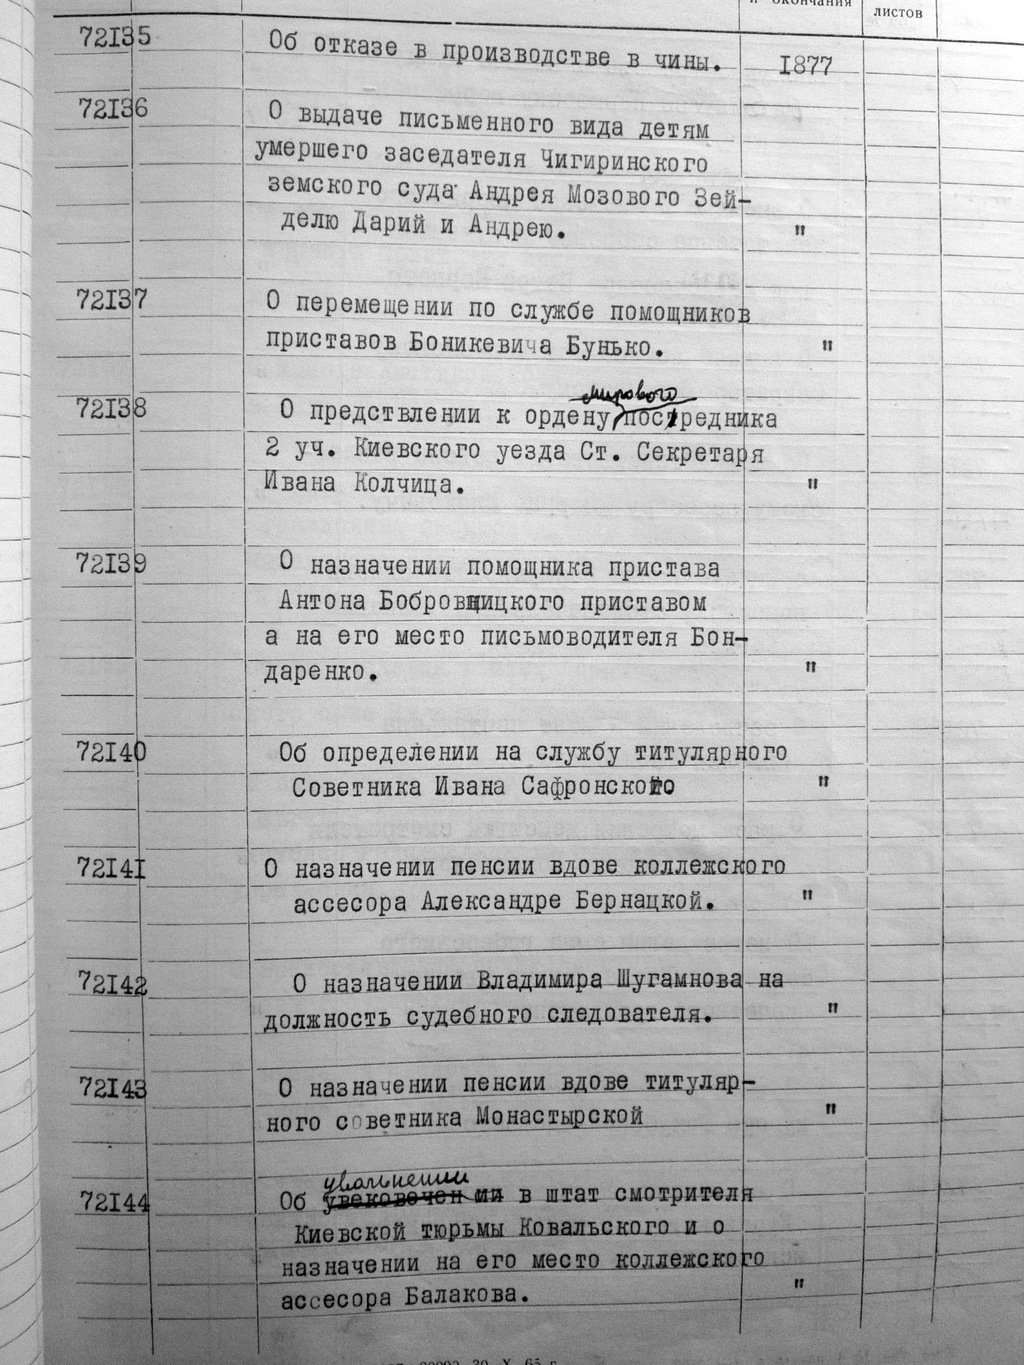 и окончания
листов
72I35 Об отказе в производстве в чины. I877
72I36 О выдаче письменного вида детям
умершего заседателя Чигиринского
земского суда Андрея Мозового Зей-
делю Дарий и Андрею. "
72I37 О перемещении по службе помощников
приставов Боникевича Бунько. "
мирового
72I38 О предствлении к ордену посредника
2 уч. Киевского уезда Ст. Секретаря
Ивана Колчица. "
72I39 О назначении помощника пристава
Антона Бобровницкого приставом
а на его место письмоводителя Бон-
даренко. "
72I40 Об определении на службу титулярного
Советника Ивана Сафронского "
72I41 О назначении пенсии вдове коллежского
ассесора Александре Бернацкой. "
72I42 О назначении Владимира Шугамнова на
должность судебного следователя. "
72I43 О назначении пенсии вдове титуляр-
ного советника Монастырской "
увольнении
72I44 Об увековечен ии в штат смотрителя
Киевской тюрьмы Ковальского и о
назначении на его место коллежского
ассесора Балакова. "